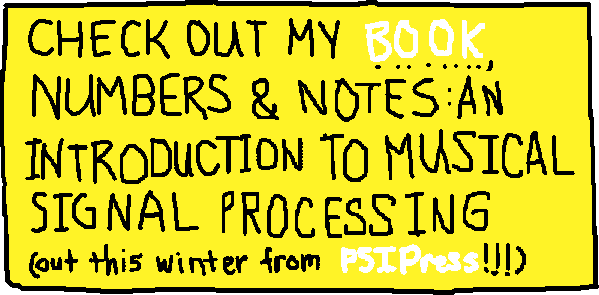 CHECK OUT MY BOOK,
NUMBERS & NOTES: AN
INTRODUCTION TO MUSICAL
SIGNAL PROCESSING
(out this winter from PSIPress!!!)